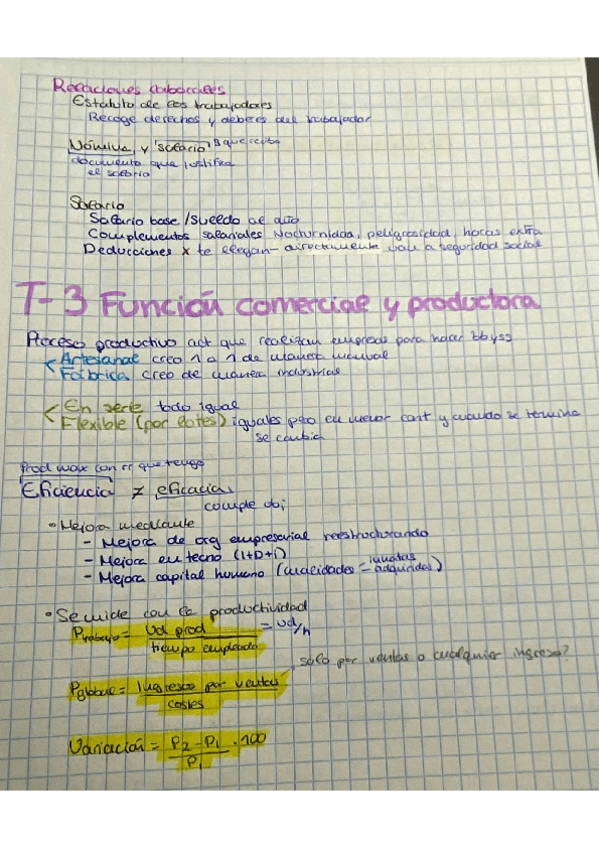 Relaciones laborales
Estatuto de los trabajadores
Recoge derechos y deberes del trabajador
Nómina y 'salario' $ que recibo
documento que justifica
el salario
Salario
Salario base / sueldo
Complementos salariales Nocturnidad, peligrosidad, horas extra
Deducciones x te llegan – directamente van a seguridad social
T-3 Función comercial y productora
Proceso productivo act que realizan empresas para hacer bb y ss
Artesanal creo 1 a 1 de manera manual
Fábrica creo de manera industrias
En serie todo igual
Flexible (por lotes) iguales pero en menor cant y cuando se termina
se cambia
Prod max con rr que tengo
Eficiencia ≠ eficacia
cumple obj
• Mejora mediante
- Mejora de org empresarial reestructurando
- Mejora en tecno (I+D+i)
- Mejora capital humano (cualidades = innatas adquiridas)
• Se mide con la productividad
P trabajo = Ud prod / tiempo empleado = ud/h
solo por ventas o cualquier ingreso?
P global = Ingresos por ventas / costes
Variación = P2 - P1 / P1 · 100